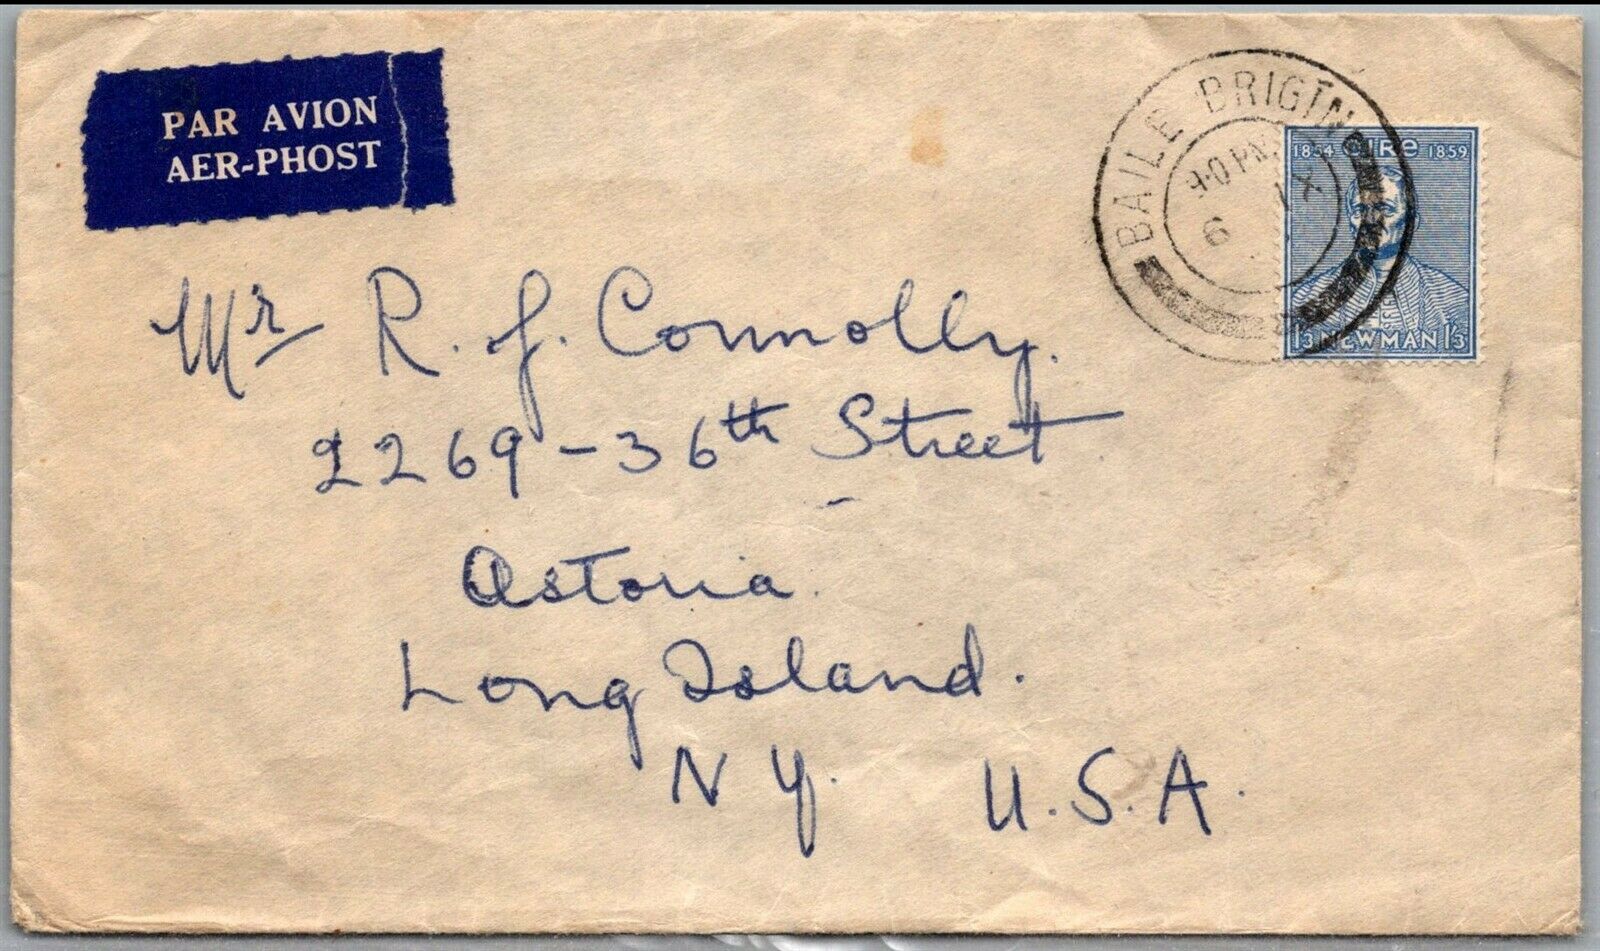 PAR AVION
AER-PHOST
BAILE BRIGÍN
9-0 PM
6 IX
1854 éire 1859
1/3 NEWMAN 1/3
Mr R. J. Connolly.
2269-36th Street
Astoria.
Long Island.
N Y. U.S.A.